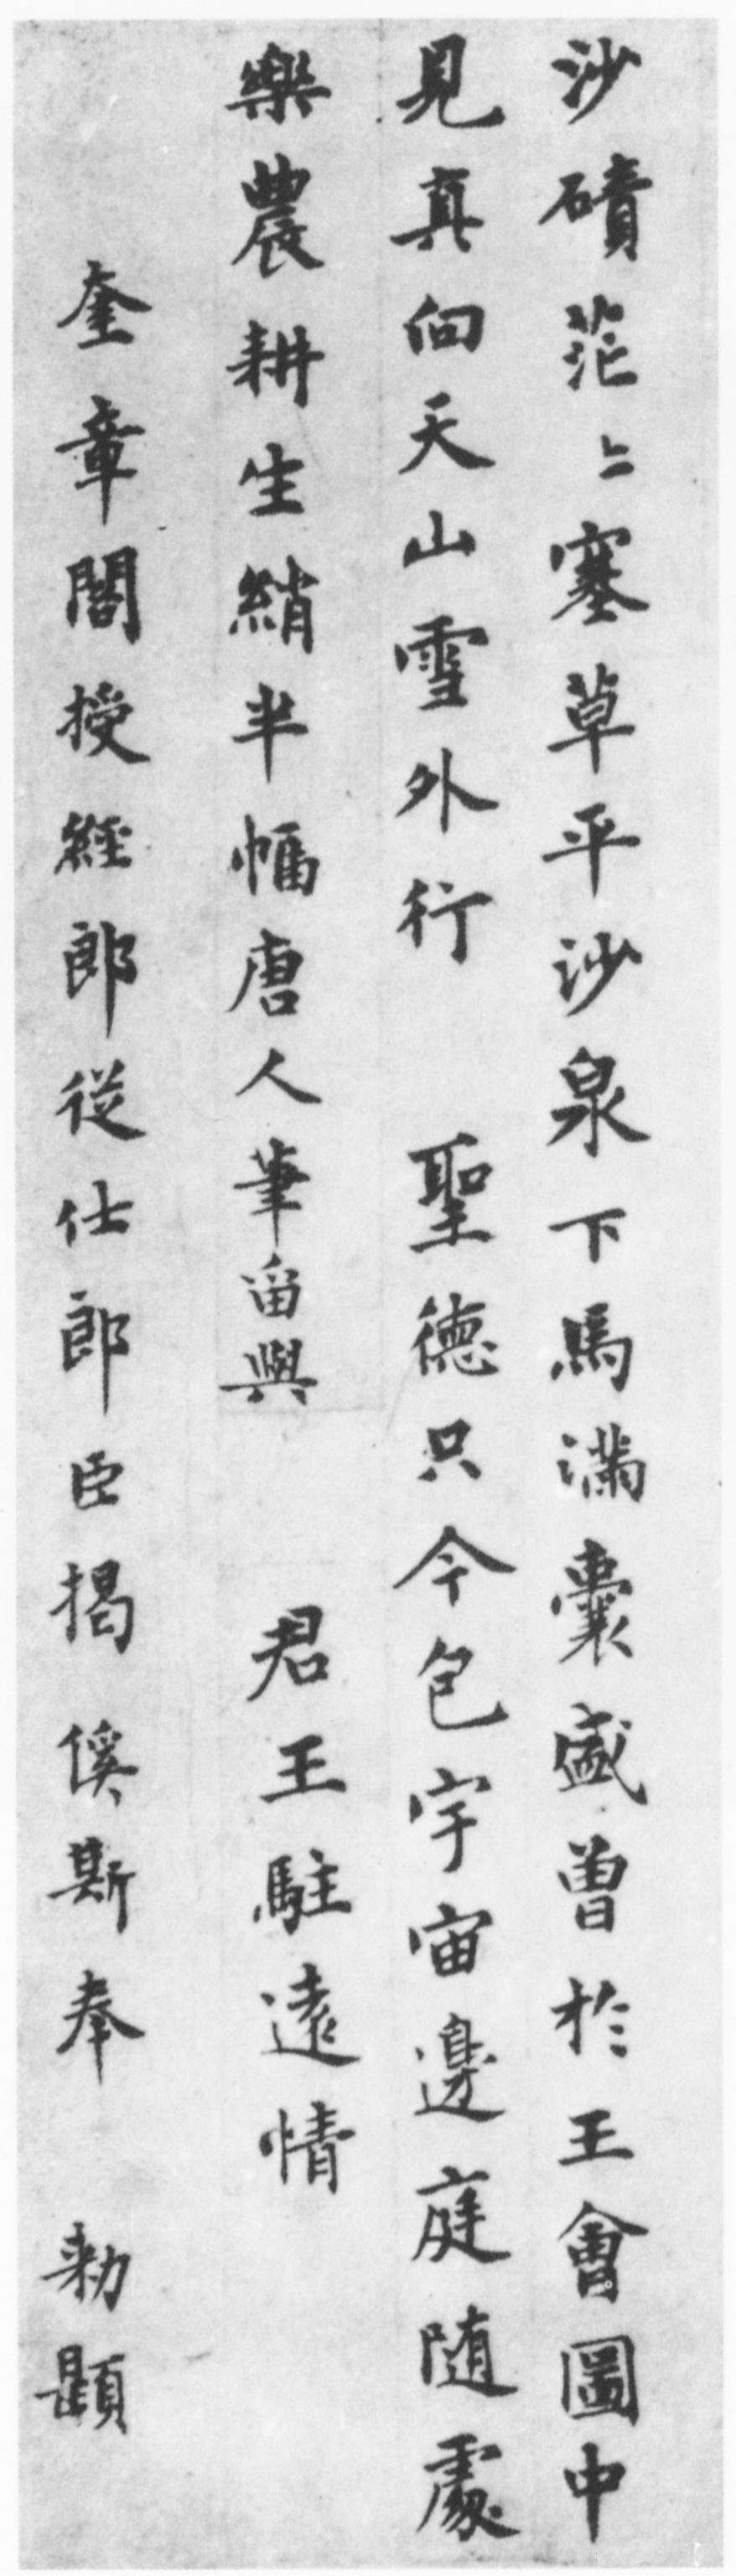 沙磧茫〻塞草平沙泉下馬滿囊盛曽於王會圖中
見真向天山雪外行　聖德只今包宇宙邊庭随處
樂農耕生綃半幅唐人筆留與　君王駐遠情
奎章閣授經郎從仕郎臣揭傒斯奉　勑題